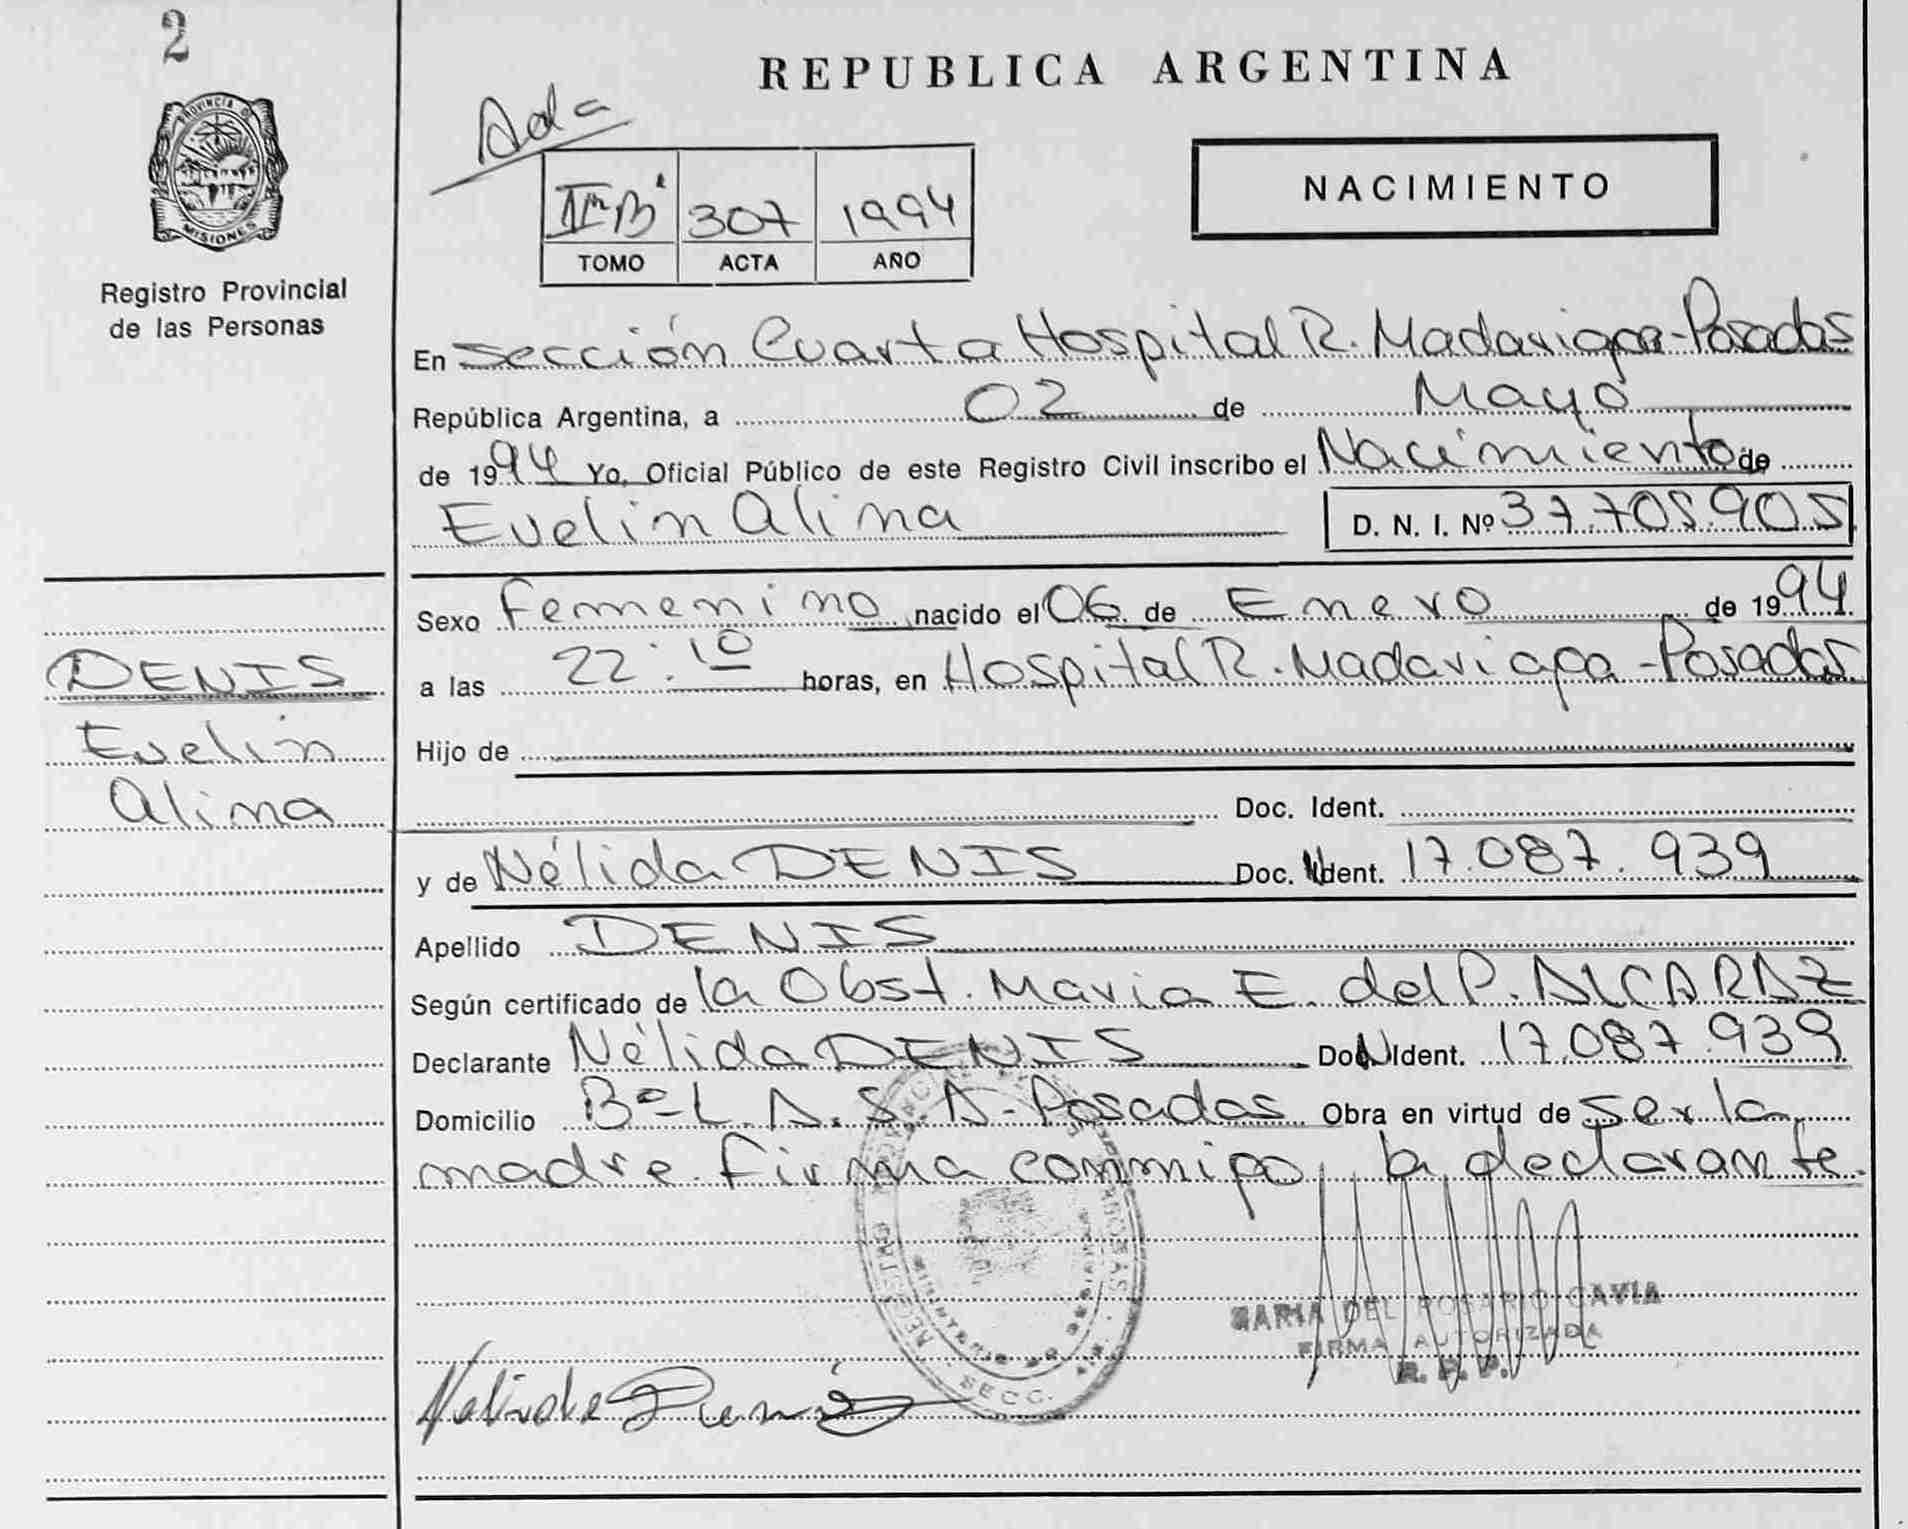 2
PROVINCIA DE
MISIONES
Registro Provincial
de las Personas
DENIS
Evelin
Alina
REPUBLICA ARGENTINA
Ada
307 1994
TOMO ACTA AÑO
NACIMIENTO
En sección Cuarta Hospital R. Madariaga-Posadas
República Argentina, a 02 de Mayo
de 1994 Yo, Oficial Público de este Registro Civil inscribo el Nacimiento de
Evelin Alina D. N. I. Nº 37.705.905
Sexo femenino nacido el 06 de Enero de 1994
a las 22:10 horas, en Hospital R. Madariaga-Posadas
Hijo de
Doc. Ident.
y de Nélida DENIS Doc. Ident. 17.087.939
Apellido DENIS
Según certificado de la Obst. Maria E. del P. ALCARAZ
Declarante Nélida DENIS Doc. Ident. 17.087.939
Domicilio Bº L.A.S.A-Posadas Obra en virtud de ser la
madre. firma conmigo, la declarante.
MARIA DEL ROSARIO CAVIA
FIRMA AUTORIZADA
R. P. P.
REGISTRO PROVINCIAL PERSONAS
MINISTERIO DE GOBIERNO
SECC. 4ta